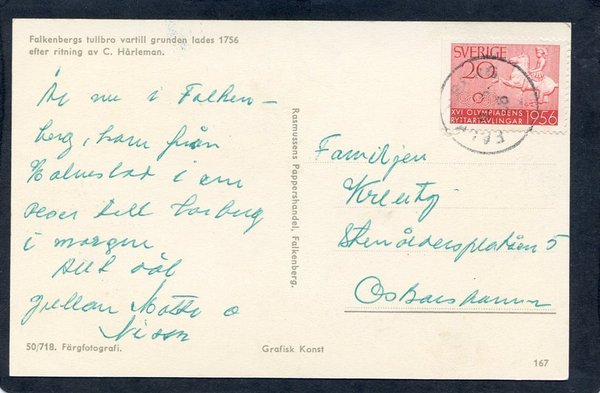 Falkenbergs tullbro vartill grunden lades 1756
efter ritning av C. Hårleman.
Är nu i Falken-
berg, kom från
Halmstad i em
reser till Varberg
i morgon
Allt väl
Motte o
Nissen
50/718. Färgfotografi.
Grafisk Konst
167
Rasmussens Pappershandel, Falkenberg.
SVERIGE
20
XVI OLYMPIADENS
RYTTARTÄVLINGAR 1956
Familjen
Stenåldersplatsen 5
Oskarshamn